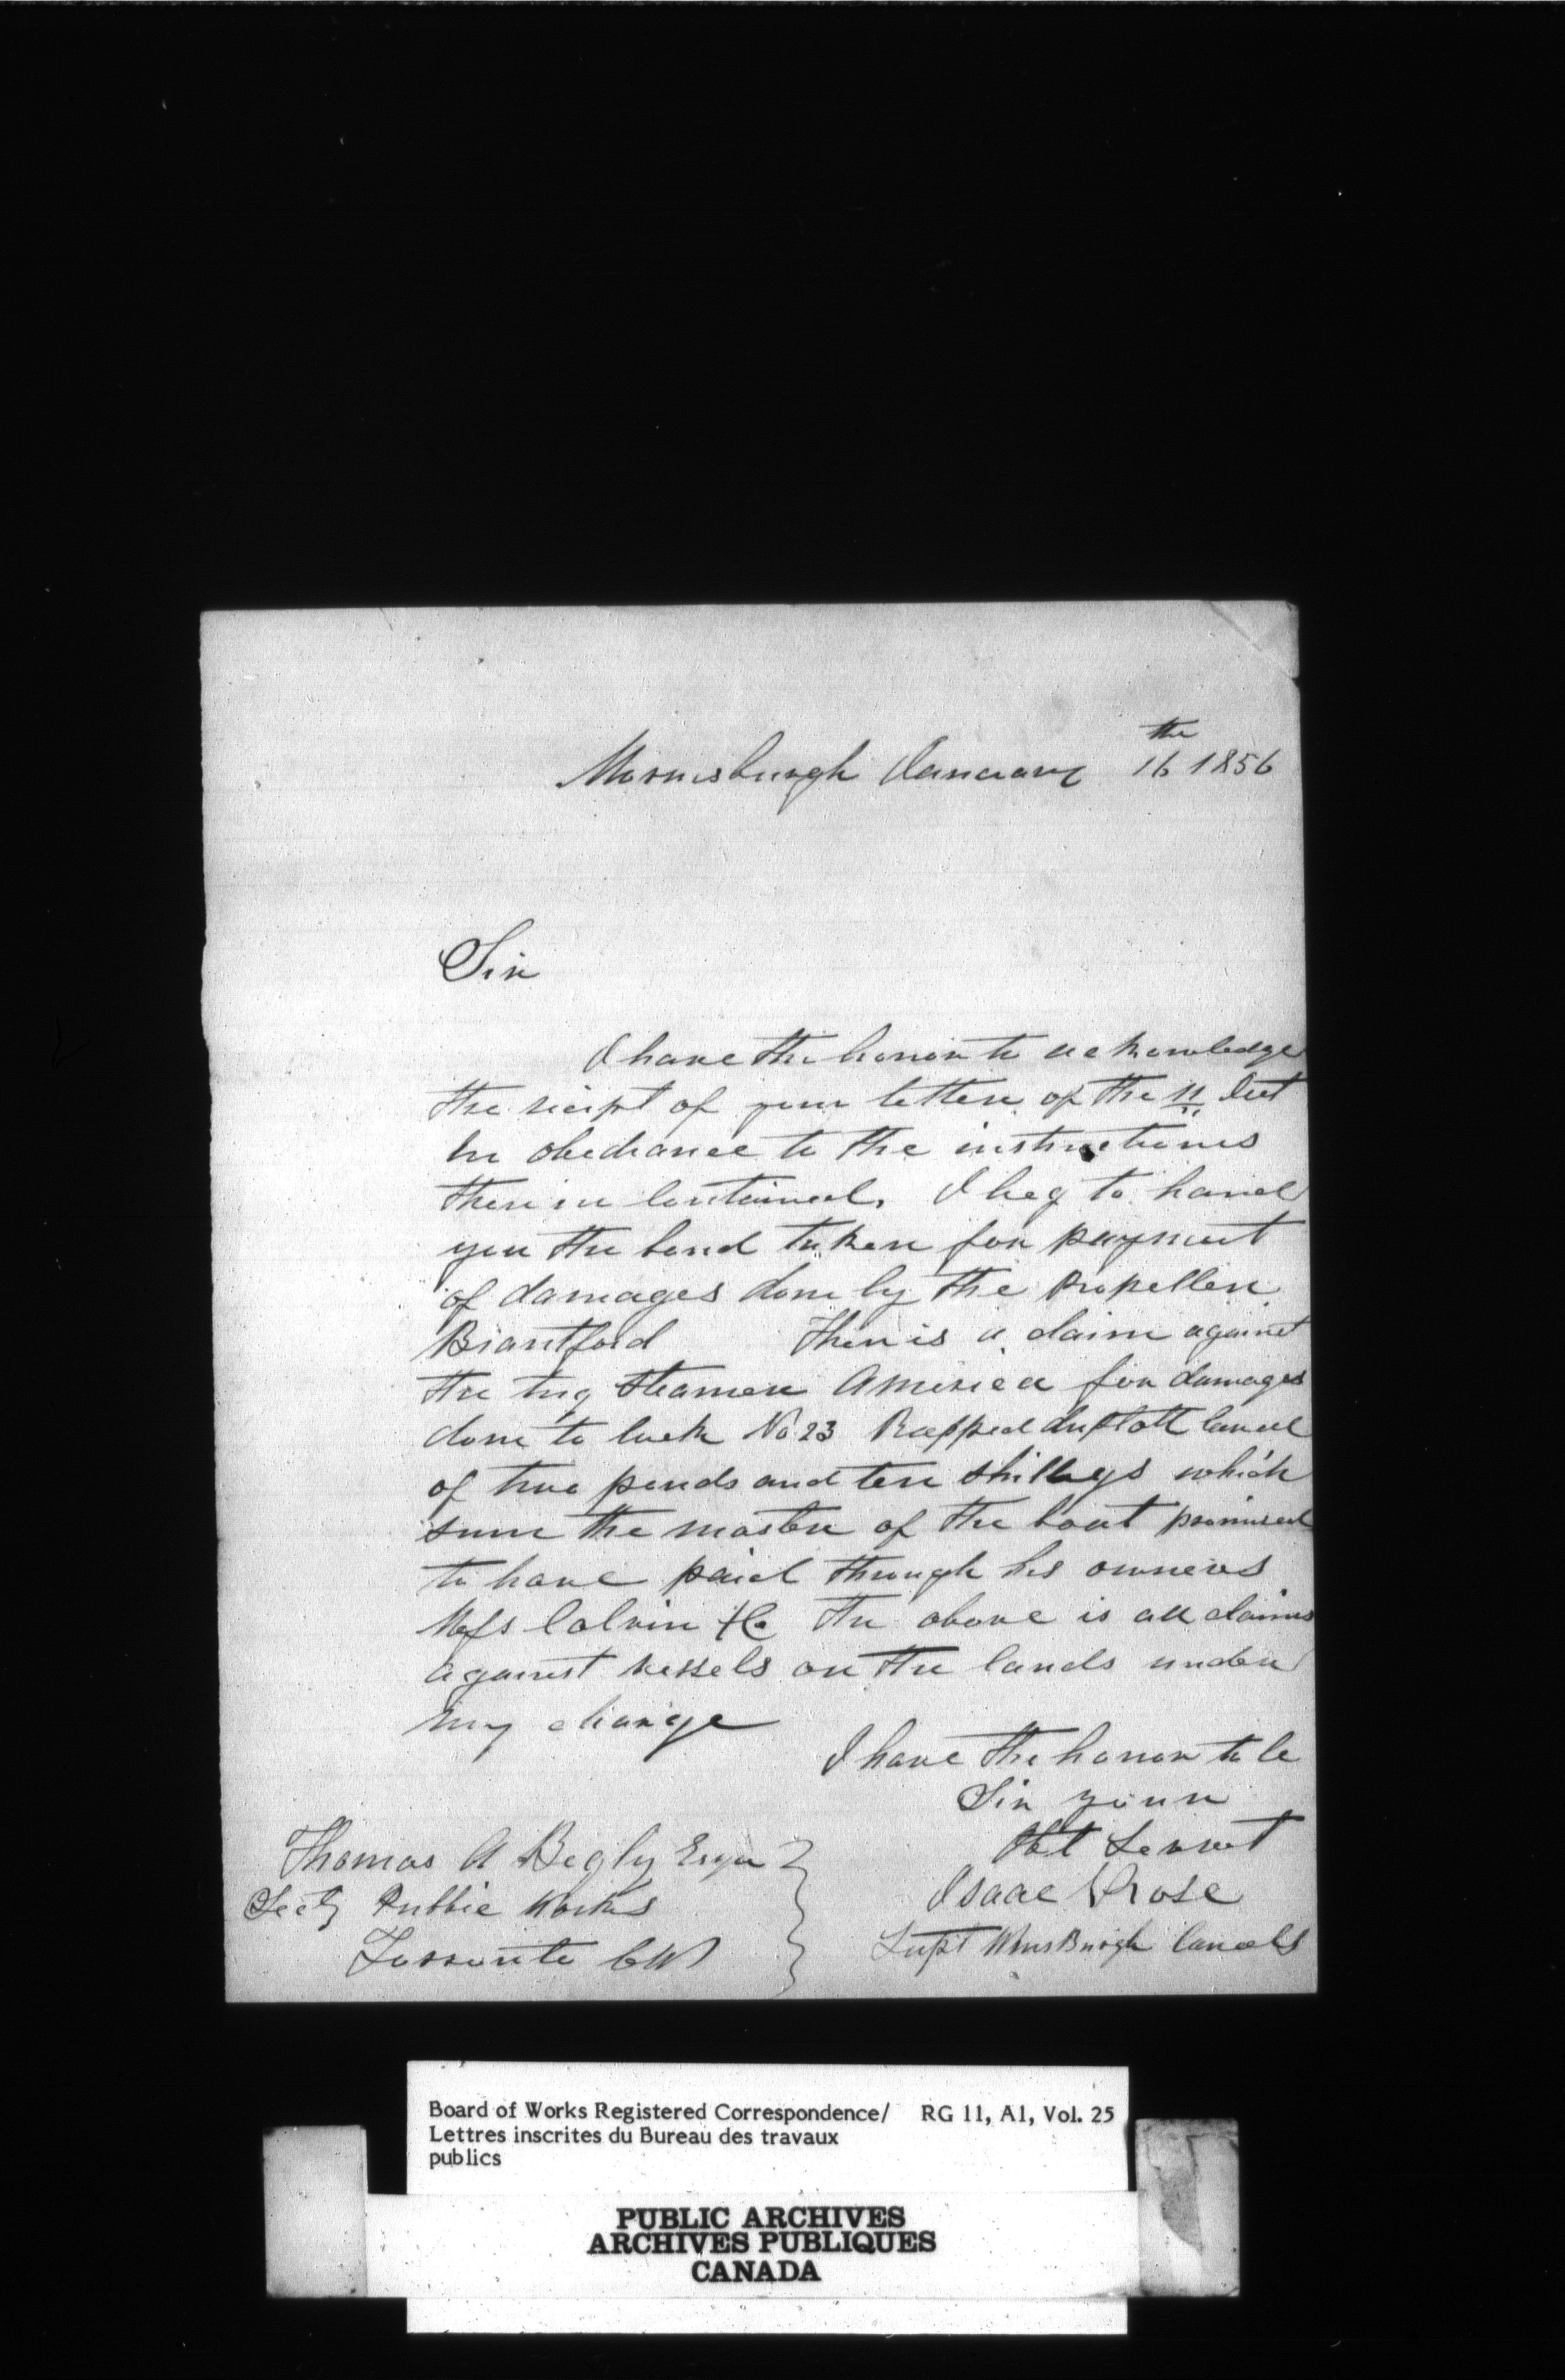 Morrisburgh January 16th 1856
Sir
I have the honor to acknowledge
the reicpt of your letter of the 11 Inst
In obediance to the instructions
therein Contained. I beg to hand
you the bond taken for payment
of damages done by the Propeller
Brantford There is a claim against
the tug steamer America for damages
done to lock No 23 Rapped du platt Canal
of two ponds and ten shillings which
sum the master of the boat promised
to have paid through his owners
Mess Calvin & Co The above is all claims
against vessels on the Canals under
my charge
I have the honor to be
Sir your
Obt Servnt
Isaac N Rose
Supt WmsBurgh Canals
Thomas A Begly Esqr
Secty Public Works
Torronto CW
Board of Works Registered Correspondence/ RG 11, A1, Vol. 25
Lettres inscrites du Bureau des travaux
publics
PUBLIC ARCHIVES
ARCHIVES PUBLIQUES
CANADA